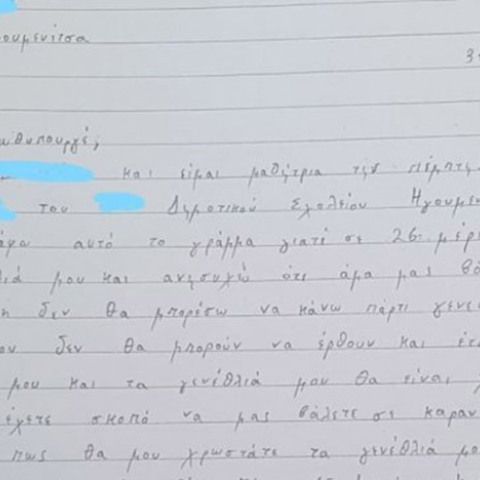 ουμενίτσα
3
θυπουργέ,
και είμαι μαθήτρια της πέμπτη
του Δημοτικού Σχολείου Ηγουμεν
άφω αυτό το γράμμα γιατί σε 26 μέρε
λιά μου και ανησυχώ ότι άμα μας βά
η δεν θα μπορέσω να κάνω πάρτι γενε
ου δεν θα μπορούν να έρθουν και έτ
μου και τα γενέθλιά μου θα είναι
έχετε σκοπό να μας βάλετε σε καραν
πως θα μου χρωστάτε τα γενέθλιά μο